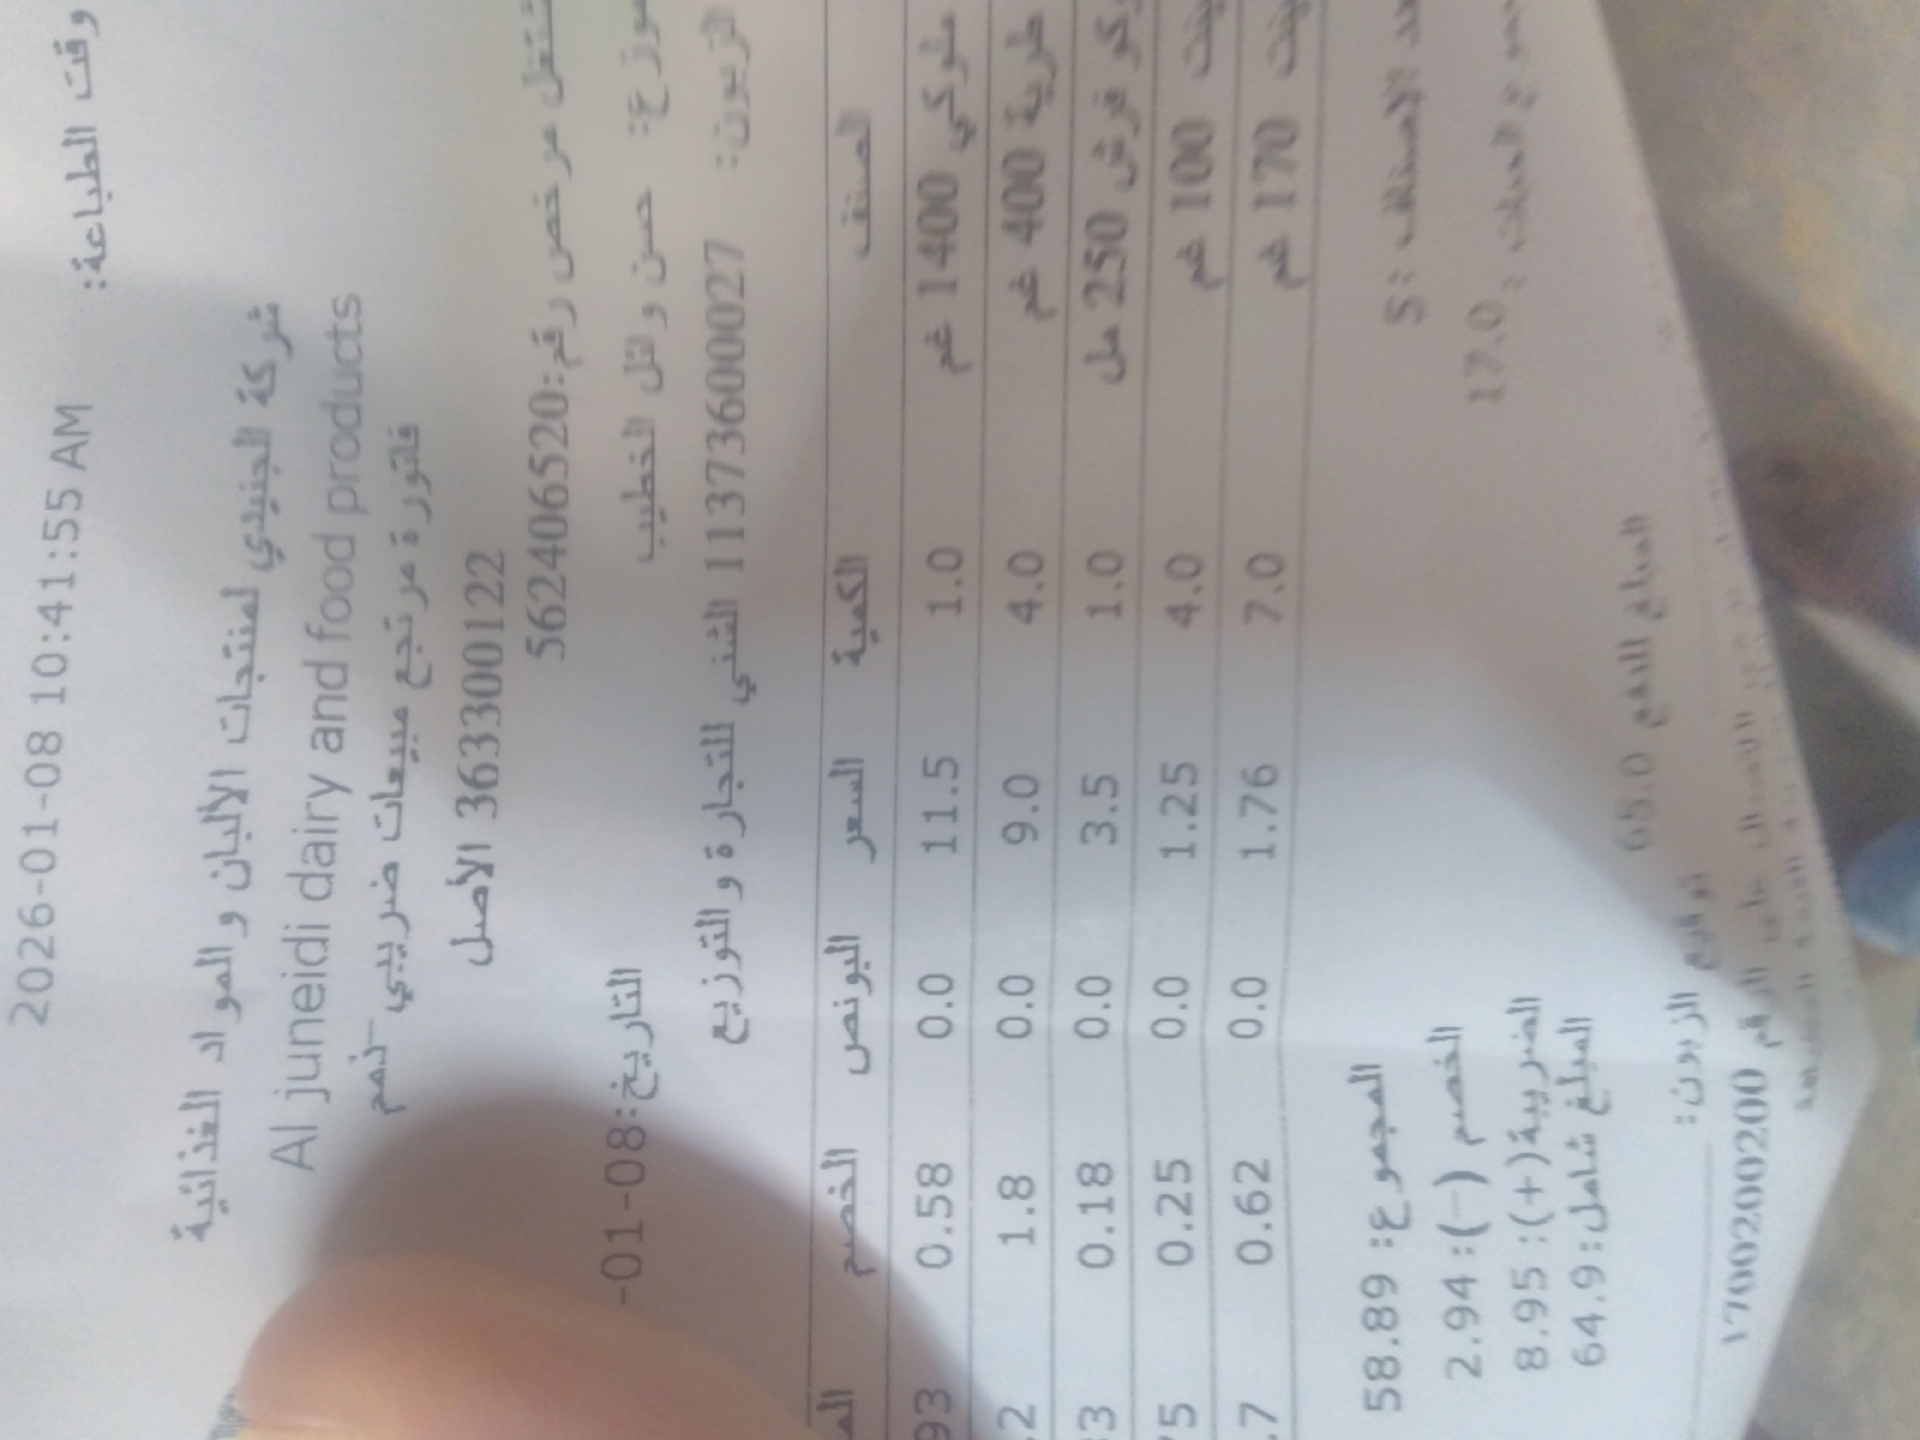 وقت الطباعة: 2026-01-08 10:41:55 AM
شركة الجنيدي لمنتجات الألبان والمواد الغذائية
Al juneidi dairy and food products
فاتورة مرتجع مبيعات ضريبي
363300122 الأصل
مشتغل مرخص رقم:562406520
موزع: حسن وائل الخطيب التاريخ:08-01-
الزبون: 1137360000027 الغني للتجارة والتوزيع
الصنف الكمية السعر البونص الخصم
1400 غم 1.0 11.5 0.0 0.58 93
طرية 400 غم 4.0 9.0 0.0 1.8 2
فرش 250 مل 1.0 3.5 0.0 0.18 3
100 غم 4.0 1.25 0.0 0.25 75
170 غم 7.0 1.76 0.0 0.62 .7
الاصناف :5 المجموع: 58.89
17.0 الخصم (-): 2.94
الضريبة(+): 8.95
المبلغ شامل:64.9
المبلغ للدفع 65.0
توقيع الزبون:
الرقم 1700200200